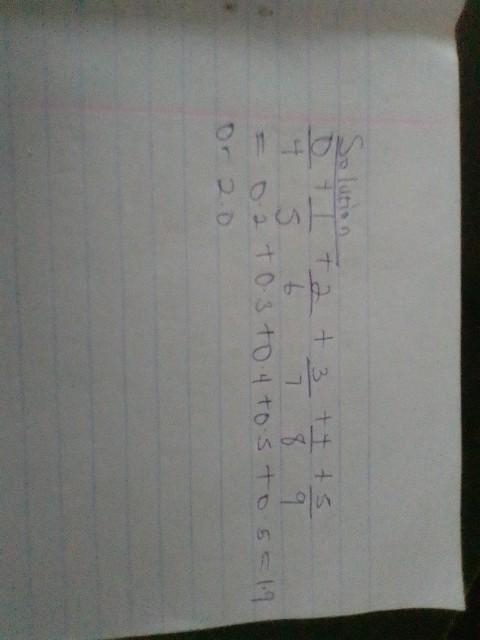 Solution
0 + 1 + 2 + 3 + 4 + 5
4 5 6 7 8 9
= 0.2 + 0.3 + 0.4 + 0.5 + 0.5 = 1.9
Or 2.0